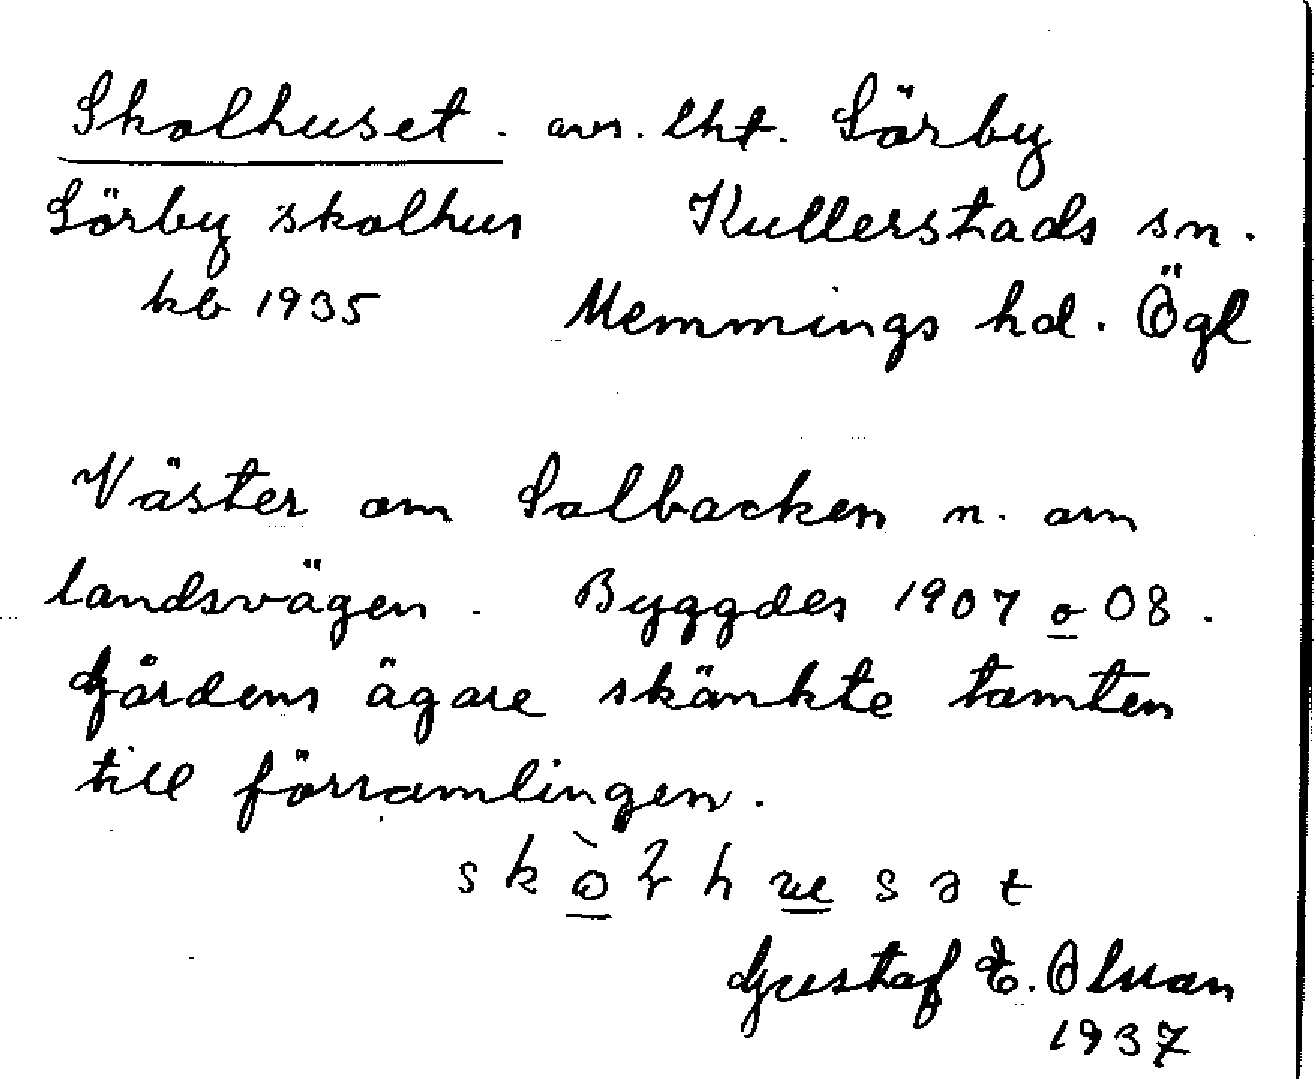 Skolhuset. avs. lht. Sörby
Sörby skolhus Kullerstads sn.
kb 1935 Memmings hd. Ögl
Väster om Solbacken n. om
landsvägen. Byggdes 1907 o 08.
Gårdens ägare skänkte tomten
till församlingen.
Gustaf E. Olsson
1937